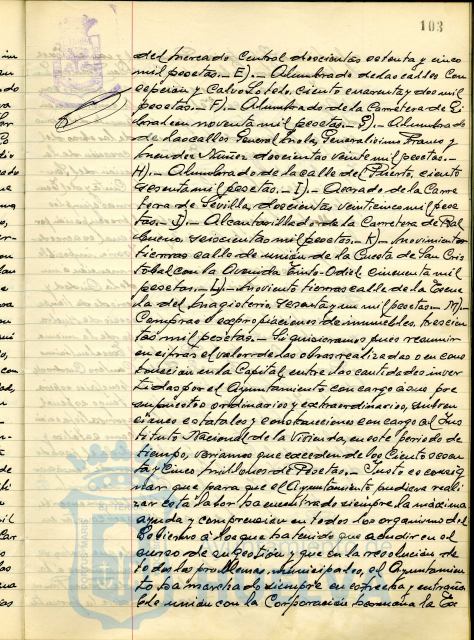 103
del Mercado Central doscientas setenta y cinco
mil pesetas.- E).- Alumbrado de las calles Con
cepcion y Calvo Sotelo, ciento cuarenta y dos mil
pesetas.- F).- Alumbrado de la Carretera de Gi
braleon noventa mil pesetas.- G).- Alumbrado
de las calles General Mola, Generalisimo Franco y
Mendez Nuñez doscientas veinte mil pesetas.-
H).- Alumbrado de la calle del Puerto, ciento
sesenta mil pesetas.- I).- Acerado de la Carre
tera de Sevilla, doscientas veinticinco mil pese
tas.- J).- Alcantarillado de la Carretera de
seiscientas mil pesetas.- K).- Movimiento
tierras calle de unión de la Cuesta de San Cris
tobal con la Avenida Tinto-Odiel cincuenta mil
pesetas.- L).- Movimiento tierras calle de la Escue
la del Magisterio, sesenta y un mil pesetas.- M).-
Compras o expropiaciones de inmuebles, trescien
tas mil pesetas.- Si quisieramos pues resumir
en cifras el valor de las obras realizadas o en cons
trucción en la Capital, entre las cantidades inver
tidas por el Ayuntamiento con cargo a sus pre
supuestos ordinarios y extraordinarios, subven
ciones estatales y construcciones con cargo al Ins
tituto Nacional de la Vivienda, en este periodo de
tiempo, veriamos que exceden de los Ciento sesen
ta y Cinco Millones de Pesetas.- Justo es consig
nar que para que el Ayuntamiento pudiera reali
zar esta labor ha encontrado siempre la máxima
ayuda y comprension en todos los organismos del
Gobierno a los que ha tenido que acudir en el
curso de su gestión y que en la resolucion de
todos los problemas municipales, el Ayuntamien
to ha marchado siempre en estrecha y entraña
ble unión con la Corporación hermana la Ex